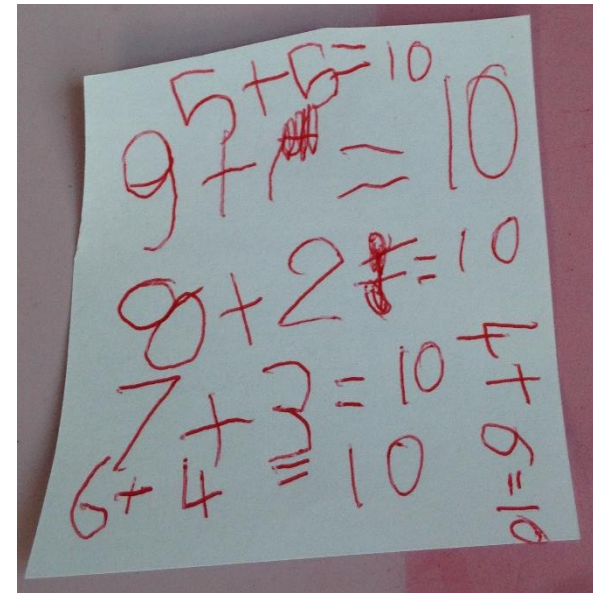 5+5=10
9+1=10
8+2=10
7+3=10
6+4=10
4+6=10